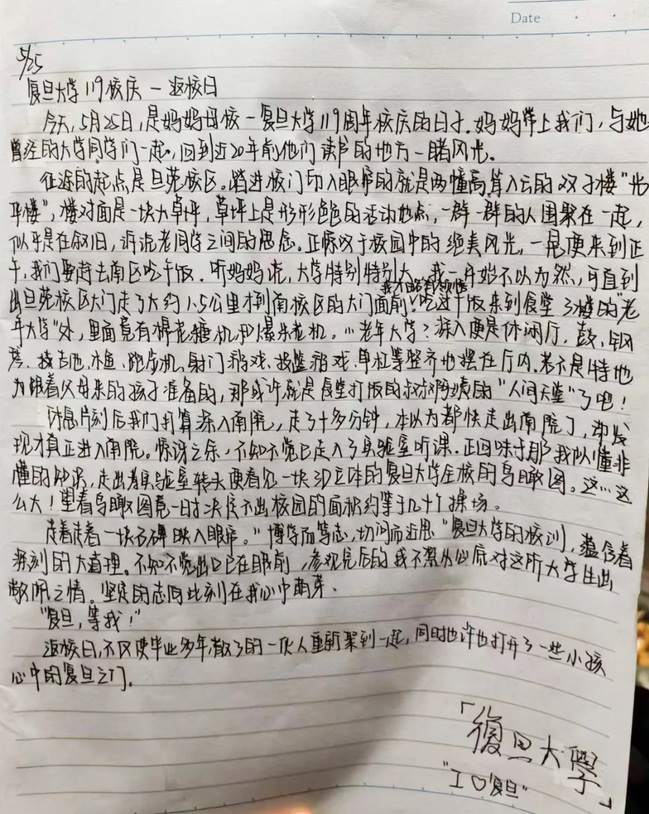 Date
5/25
复旦大学119校庆—返校日
今天,5月25日,是妈妈母校—复旦大学119周年校庆的日子.妈妈带上我们,与她
曾经的大学同学们一起,回到近20年前他们读书的地方一睹风光。
征途的起点是旦苑校区。踏进校门印入眼帘的就是两幢高耸入云的双子楼"光
华楼",楼对面是一块大草坪,草坪上是形形色色的活动地点,一群一群的人围聚在一起,
似乎是在叙旧,诉说老同学之间的思念。正惊叹于校园中的绝美风光,一晃便来到正
午,我们要赶去南区吃午饭。听妈妈说,大学特别特别大,我一开始不以为然,可直到
出旦苑校区大门走了大约1.5公里才到南校区的大门面前,我才有所领悟
吃过午饭来到食堂3楼的"老
年大学"处,里面竟有棉花糖机和爆米花机。老年大学?踏入便是休闲厅,鼓、钢
琴、吉他、木鱼、跑步机、射门游戏、投篮游戏、单杠等整齐地摆在厅内。若不是特地
为跟着父母来的孩子准备的,那或许就是食堂打饭的叔叔阿姨的"人间天堂"了吧!
休息片刻后我们打算深入南院,走了十多分钟,本以为都快走出南院了,却发
现才真正进入南院。惊讶之余,不知不觉已走入了实验室听课。正回味于那我似懂非
懂的知识,走出实验室转头便看见一块3D立体的复旦大学全校的鸟瞰图。这…这
么大!望着鸟瞰图竟一时决估不出校园的面积约等于几十个操场。
走着走着一块石碑映入眼帘。"博学而笃志,切问而近思"复旦大学的校训,蕴含着
深刻的大道理。不知不觉出口已在眼前,参观完后的我不禁从心底对这所大学生出
敬佩之情。坚定的志向此刻在我心中萌芽。
"复旦,等我!"
返校日,不仅使毕业多年散了的一伙人重新聚到一起,同时也许也打开了一些小孩
心中的复旦之门.
「復旦大學」
"I ♡复旦"